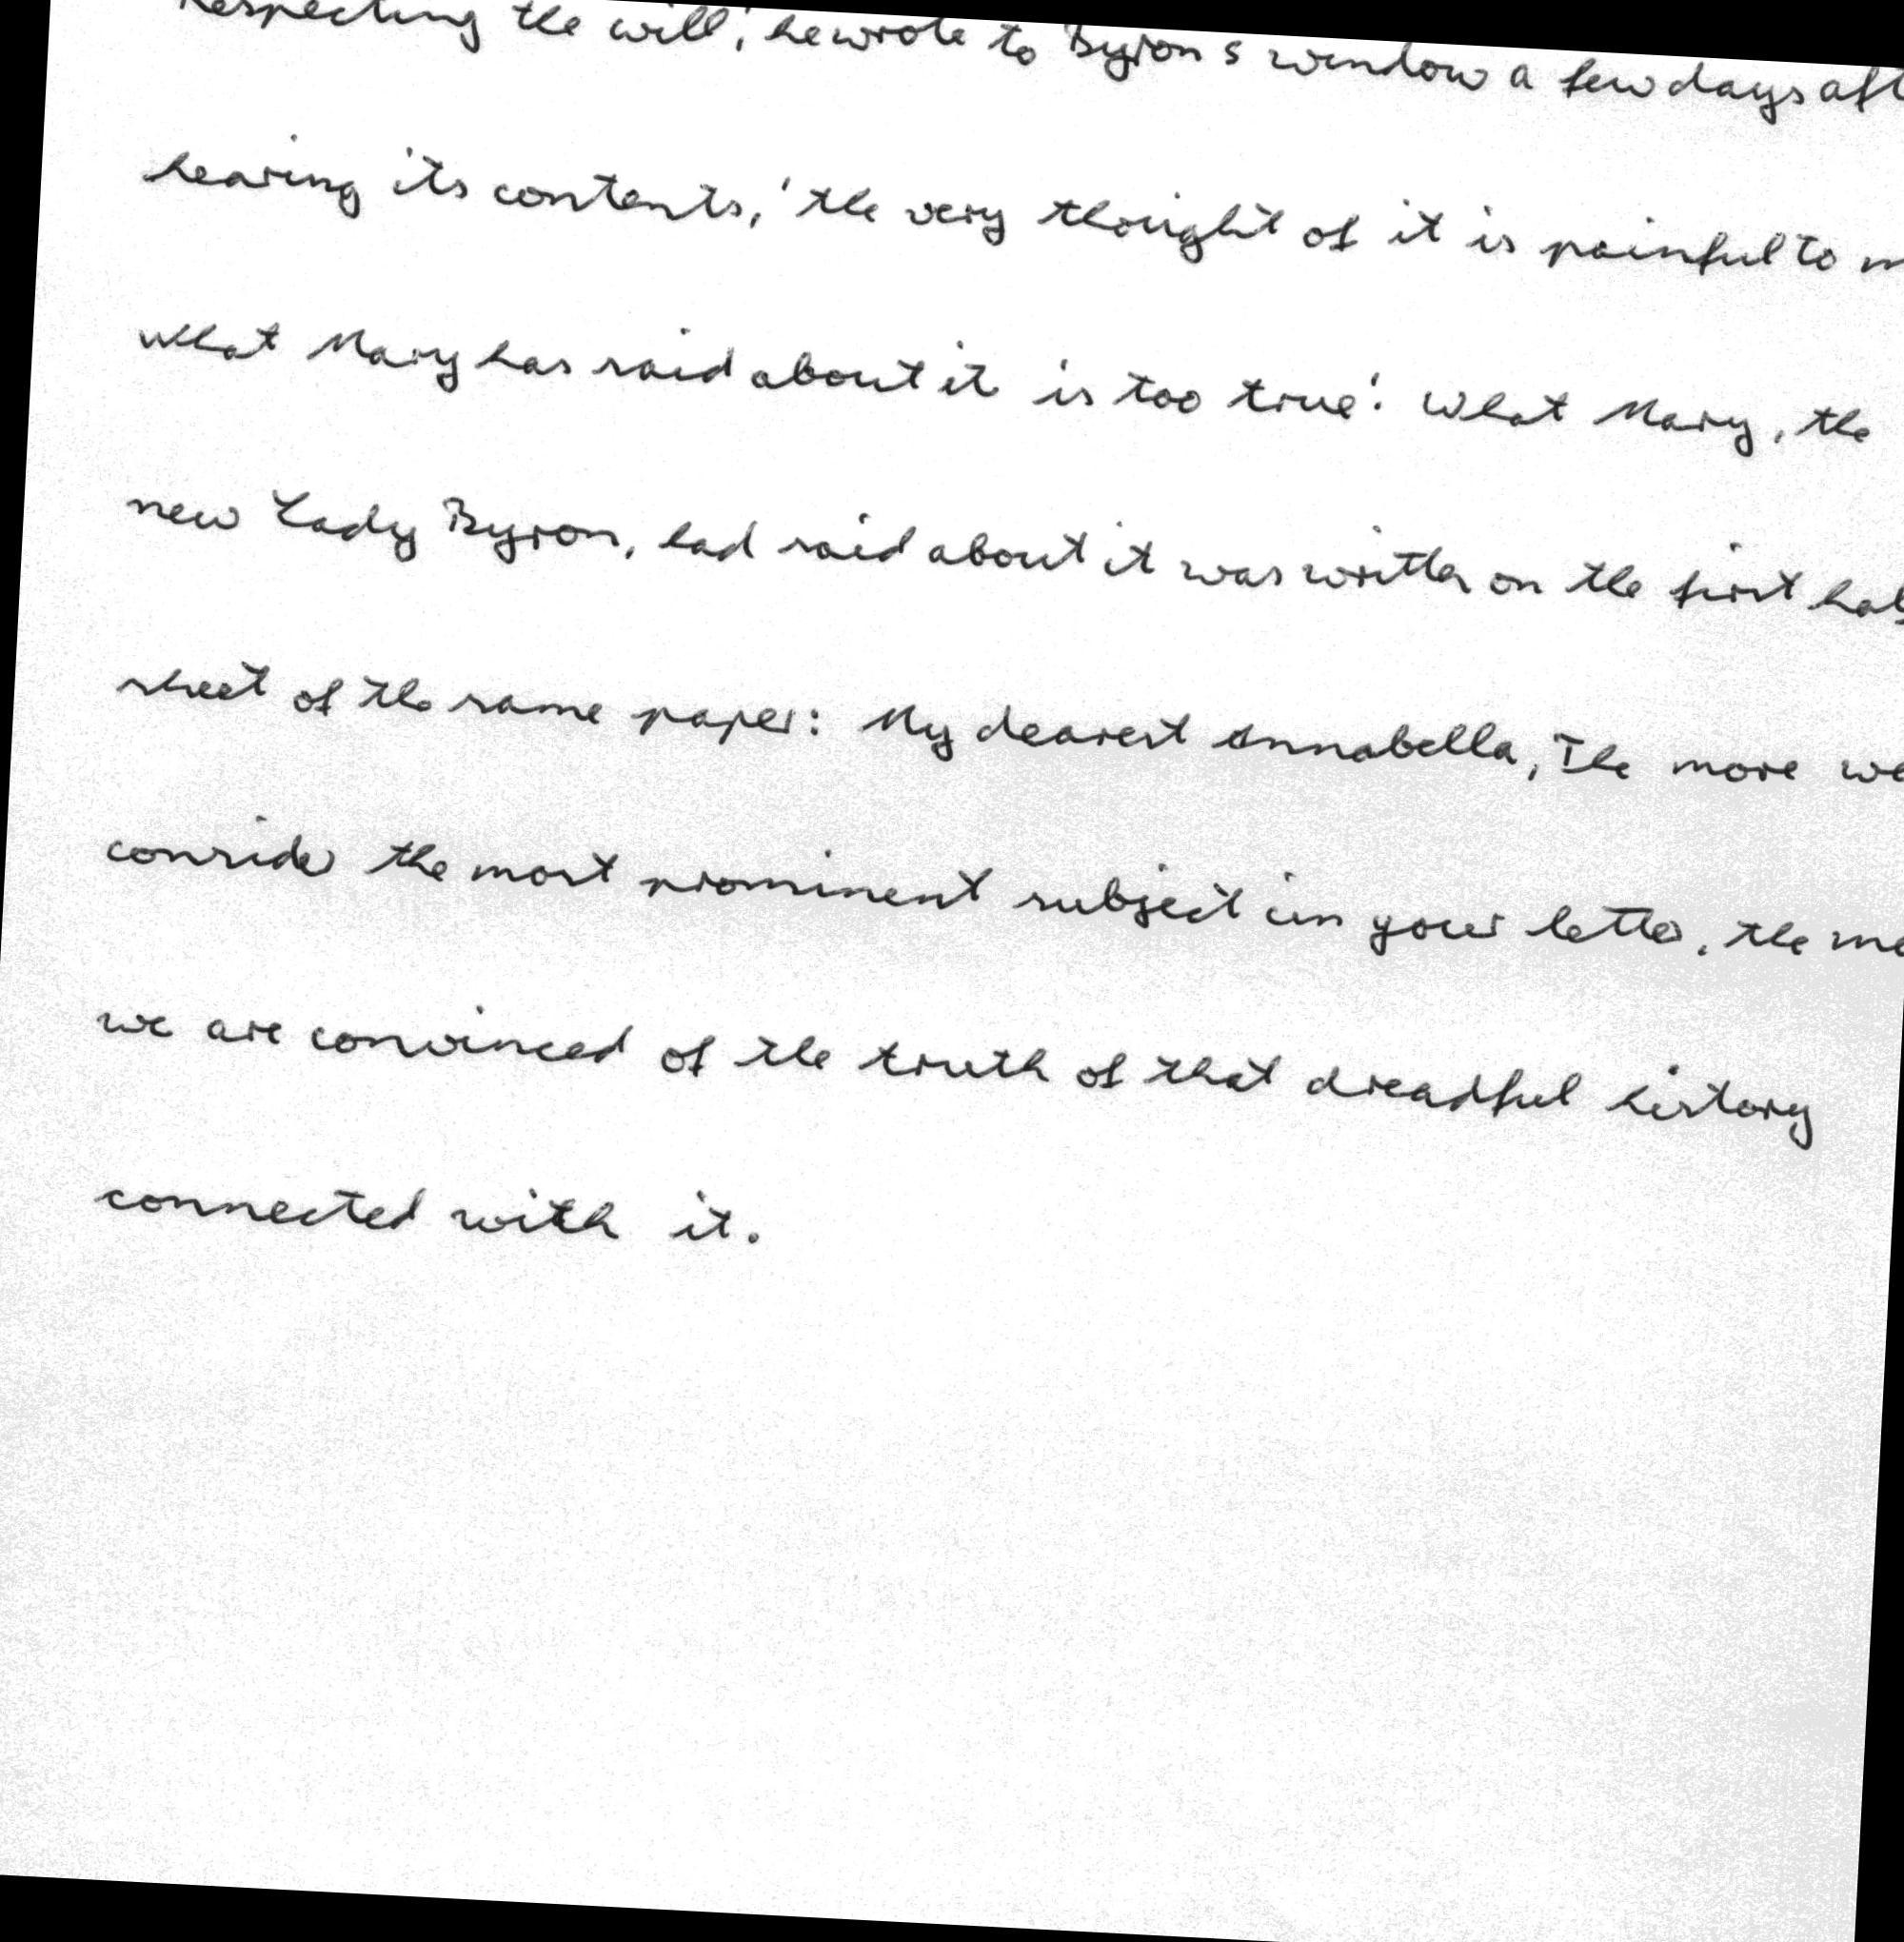 Respecting the will,' he wrote to Byron s window a few days aft
hearing its contents, 'the very thought of it is painful to m
what Mary has said about it is too true'. What Mary, the
new Lady Byron, had said about it was written on the first half
sheet of the same paper: My dearest Annabella, The more we
consider the most prominent subject in your letter, the mo
we are convinced of the truth of that dreadful history
connected with it.